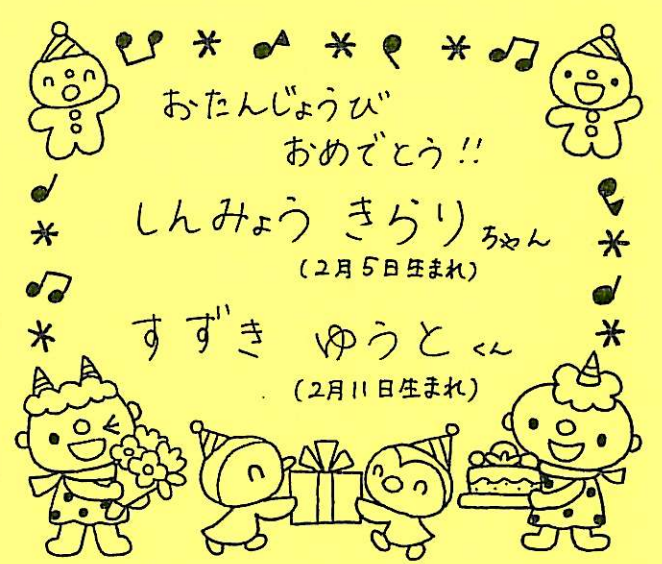 おたんじょうび
おめでとう!!
しんみょう きらりちゃん
(2月5日生まれ)
すずき ゆうとくん
(2月11日生まれ)